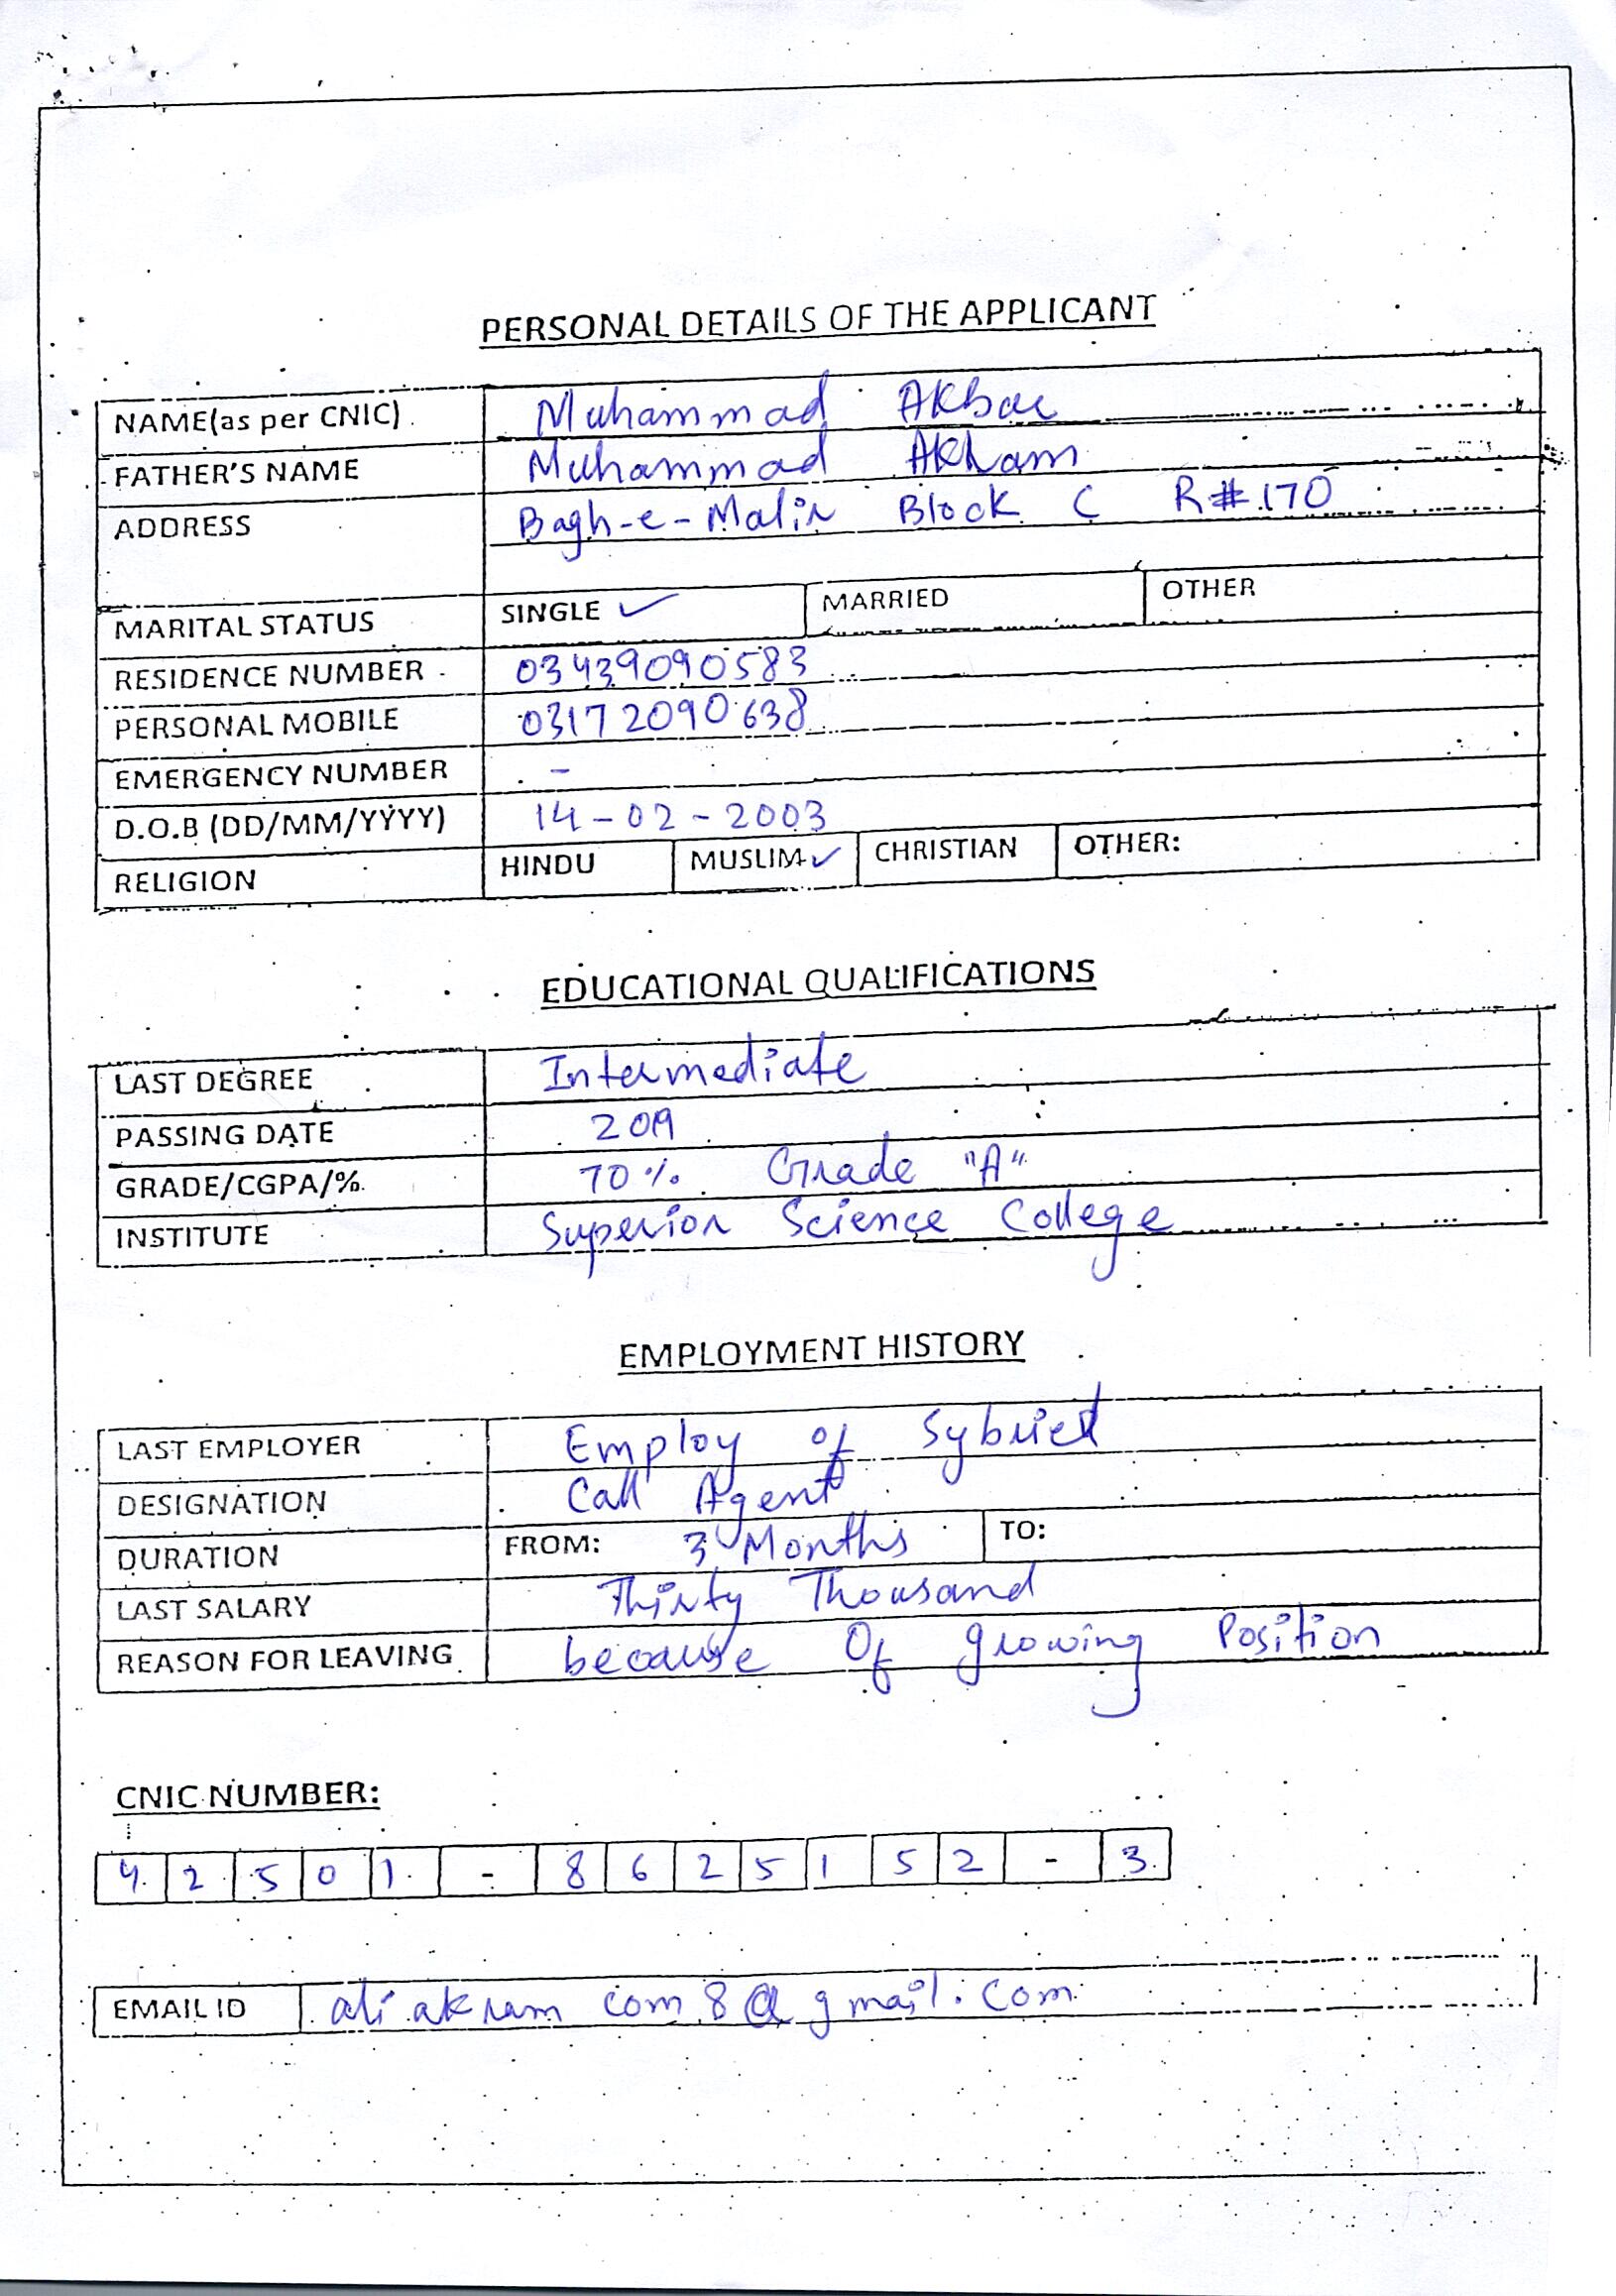 PERSONAL DETAILS OF THE APPLICANT
NAME(as per CNIC) Muhammad Akbar
FATHER'S NAME Muhammad Akram
ADDRESS Bagh-e-Malir Block C R#170
MARITAL STATUS SINGLE ✓ MARRIED OTHER
RESIDENCE NUMBER 03439090583
PERSONAL MOBILE 03172090638
EMERGENCY NUMBER -
D.O.B (DD/MM/YYYY) 14-02-2003
RELIGION HINDU MUSLIM ✓ CHRISTIAN OTHER:
EDUCATIONAL QUALIFICATIONS
LAST DEGREE Intermediate
PASSING DATE 2019
GRADE/CGPA/% 70% Grade "A"
INSTITUTE Superior Science College
EMPLOYMENT HISTORY
LAST EMPLOYER Employ of
DESIGNATION Call Agent
DURATION FROM: 3 Months TO:
LAST SALARY Thirty Thousand
REASON FOR LEAVING because Of growing Position
CNIC NUMBER:
42501-8625152-3
EMAIL ID ali akram com 8@gmail.com